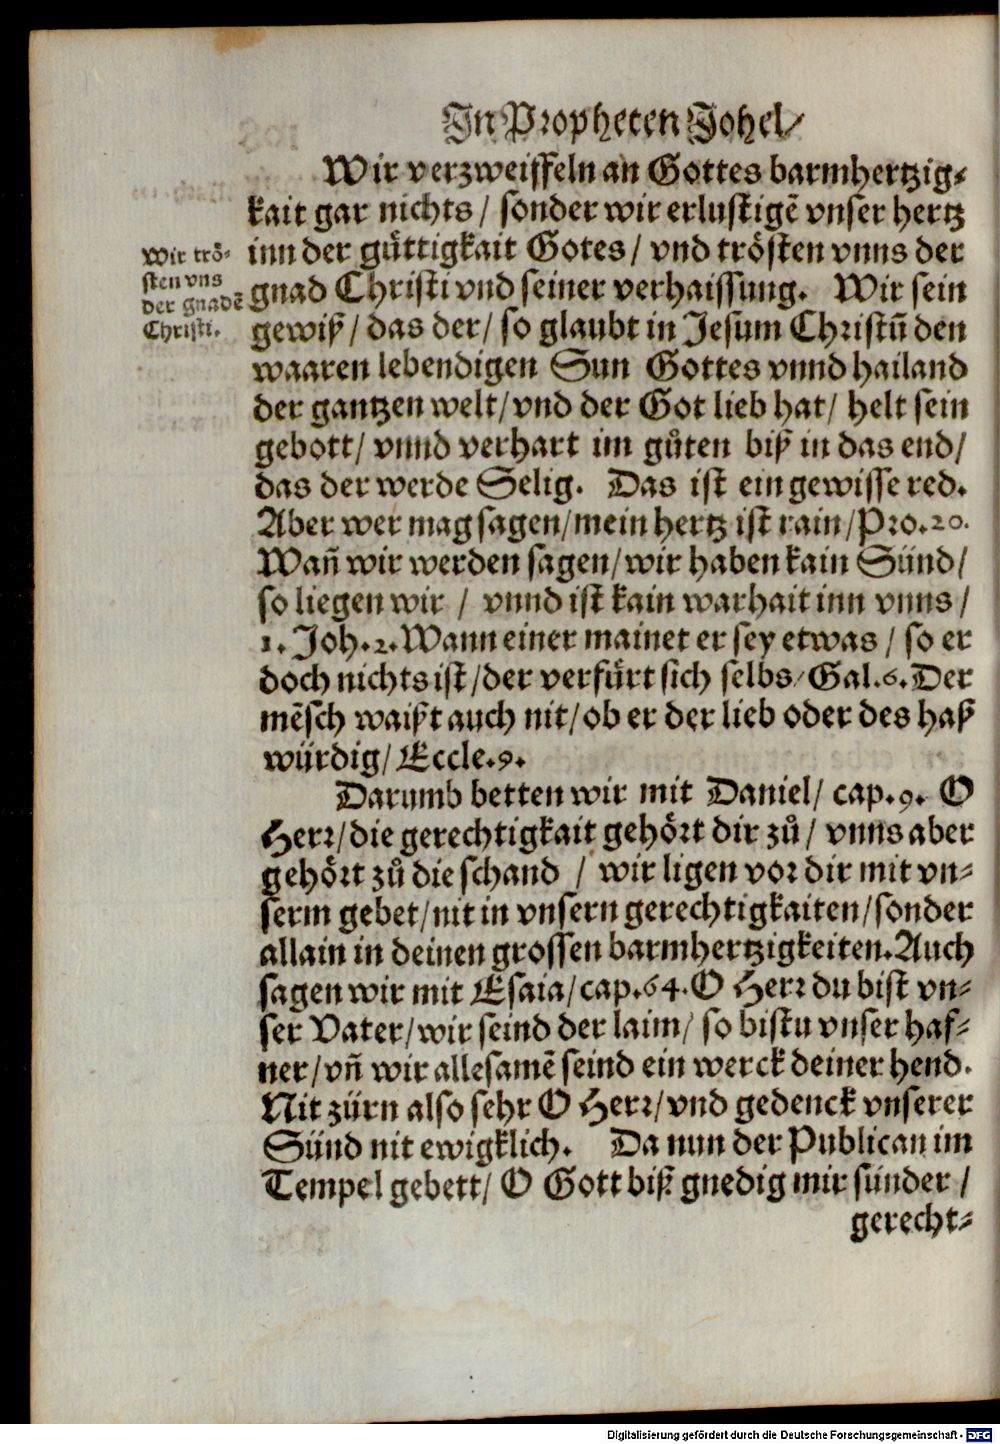 In Propheten Johel/
Wir verzweiffeln an Gottes barmhertzig⸗
kait gar nichts / sonder wir erlustigẽ vnser hertz
inn der gu̇ttigkait Gotes / vnd trösten vnns der
gnad Christi vnd seiner verhaissung. Wir sein
gewiß / das der / so glaubt in Jesum Christũ den
waaren lebendigen Sun Gottes vnnd hailand
der gantzen welt / vnd der Got lieb hat / helt sein
gebott / vnnd verhart im gůten biß in das end /
das der werde Selig. Das ist ein gewisse red.
Aber wer mag sagen / mein hertz ist rain / Pro. 20.
Wañ wir werden sagen / wir haben kain Sünd /
so liegen wir / vnnd ist kain warhait inn vnns /
1. Joh. 2. Wann einer mainet er sey etwas / so er
doch nichts ist / der verfürt sich selbs / Gal. 6. Der
mẽsch waißt auch nit / ob er der lieb oder des haß
würdig / Eccle. 9.
Darumb betten wir mit Daniel / cap. 9. O
Herr / die gerechtigkait gehört dir zů / vnns aber
gehört zů die schand / wir ligen vor dir mit vn⸗
serm gebet / nit in vnsern gerechtigkaiten / sonder
allain in deinen grossen barmhertzigkeiten. Auch
sagen wir mit Esaia / cap. 64. O Herr du bist vn⸗
ser Vater / wir seind der laim / so bistu vnser haf⸗
ner / vñ wir allesamẽ seind ein werck deiner hend.
Nit zürn also sehr O Herr / vnd gedenck vnserer
Sünd nit ewigklich. Da nun der Publican im
Tempel gebett / O Gott biß gnedig mir sünder /
gerecht⸗
Wir trö⸗
sten vns
der gnadẽ
Christi.
Digitalisierung gefördert durch die Deutsche Forschungsgemeinschaft - DFG